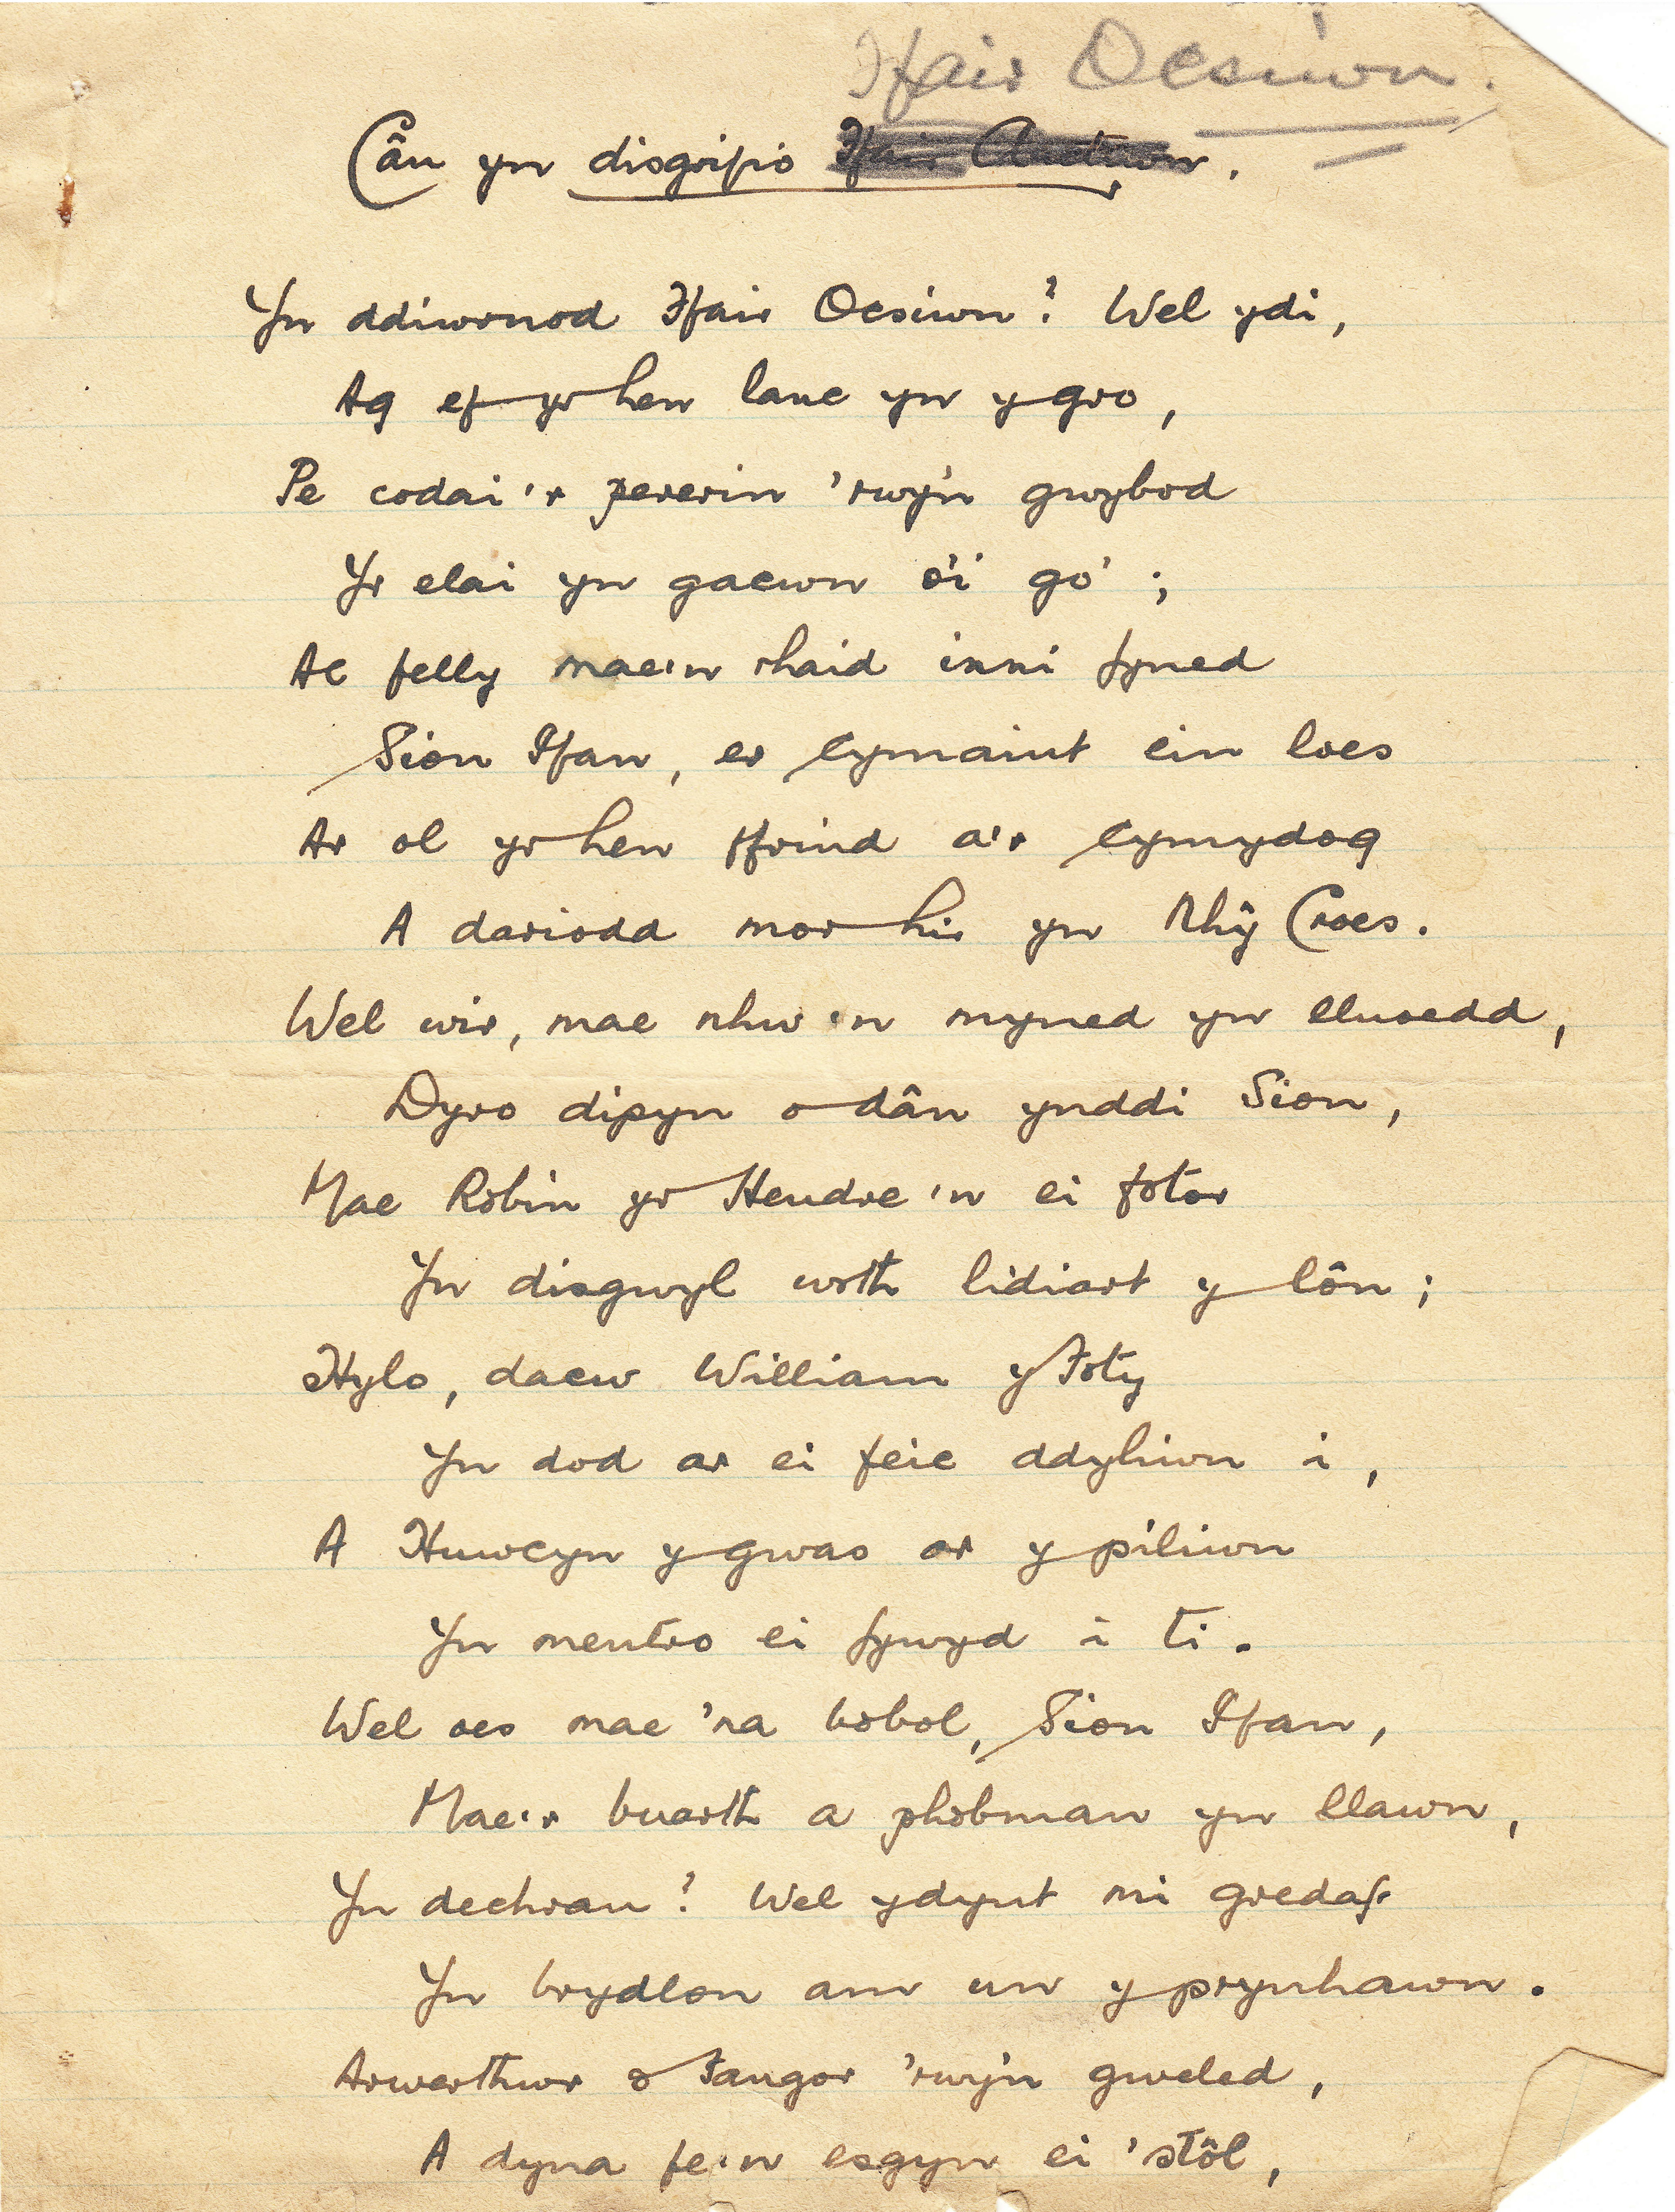 Ffair Ocsiwn.
Cân yn disgrifio Ffair Auctiwn.
Yn ddiwrnod Ffair Ocsiwn? Wel ydi,
Ag ef yr hen lanc yn y gro,
Pe codai'r pererin 'rwy'n gwybod
Yr elai yn gacwn o'i go';
Ac felly mae'n rhaid inni fyned
Sion Ifan, er cymaint ein loes
Ar ol yr hen ffrind a'r cymydog
A dariodd mor hir yn Rhŷ Croes.
Wel wir, mae nhw'n myned yn lluoedd,
Dyro dipyn o dân ynddi Sion,
Mae Robin yr Hendre'n ei fotor
Yn disgwyl wrth lidiart y lôn;
Hylo, dacw William y Foty
Yn dod ar ei feic ddyliwn i,
A Huwcyn y gwas ar y piliwn
Yn mentro ei fywyd i ti.
Wel oes mae 'na bobol, Sion Ifan,
Mae'r buarth a phobman yn llawn,
Yn dechrau? Wel ydynt mi gredaf
Yn brydlon am un y prynhawn.
Arwerthwr o Fangor 'rwy'n gweled,
A dyna fe'n esgyn ei 'stôl,